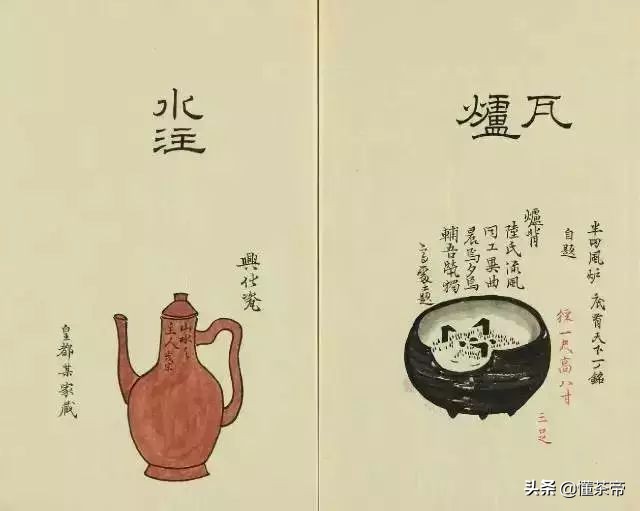 瓦爐
半田風炉 底有天下一銘
自題
徑一尺高八寸
三足
爐背
陸氏流風
同工異曲
晨焉夕焉
輔吾煢獨
題
水注
瓷
山水
主人
皇都某家蔵
头条 @懂茶帝